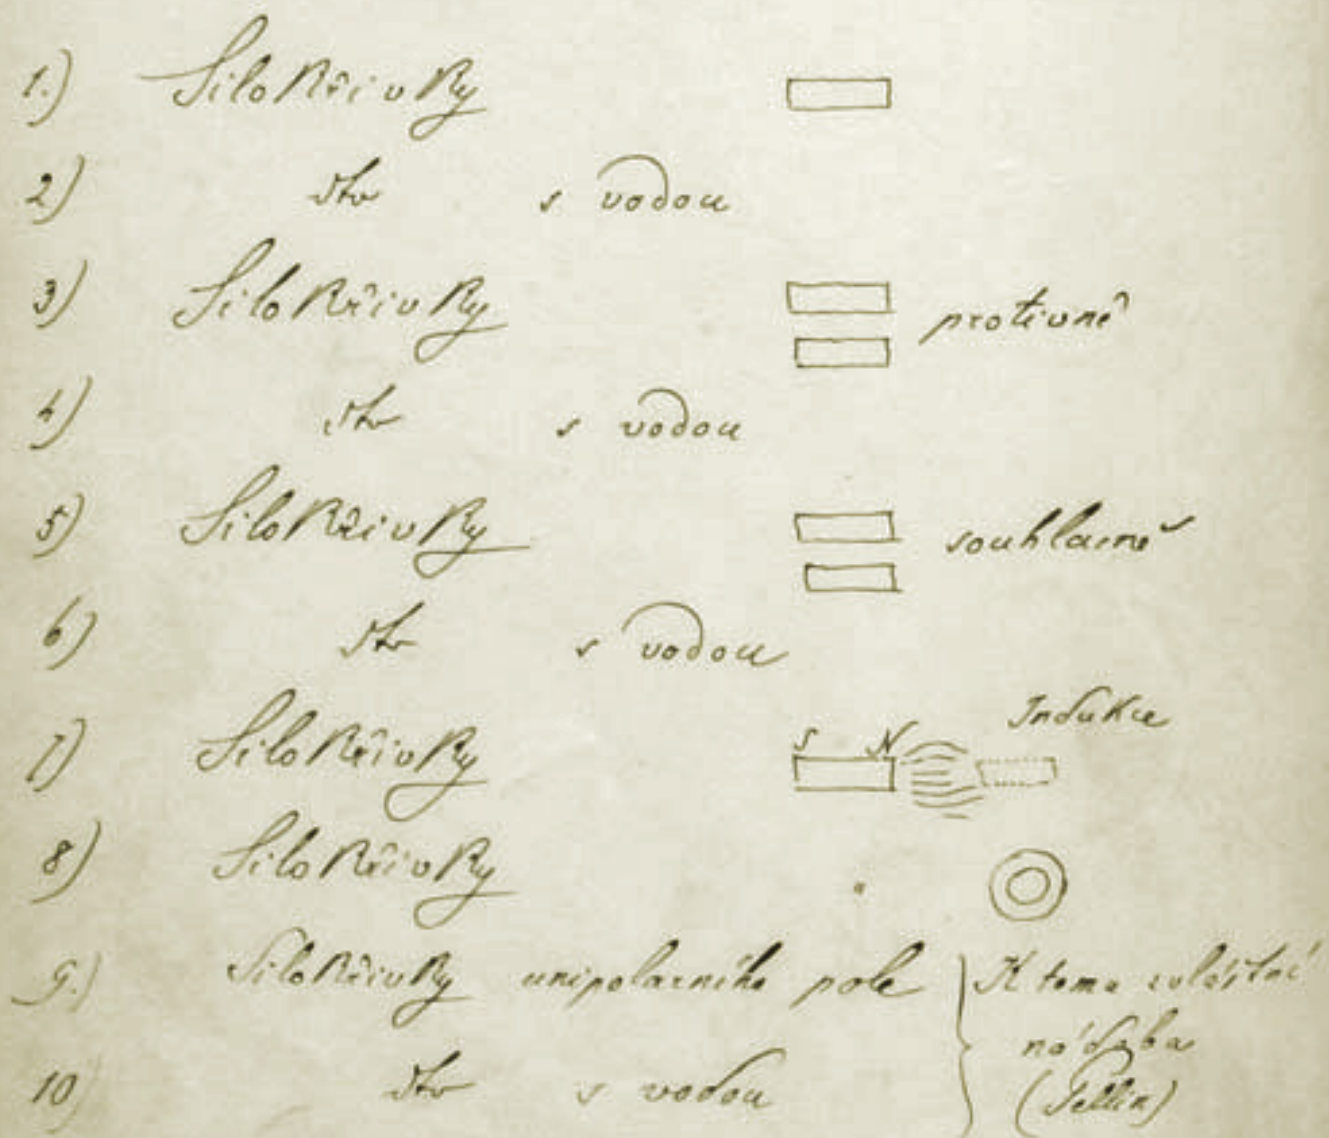 1.) Silokřivky
2) dtto s vodou
3) Silokřivky protivně
4) dtto s vodou
5) Silokřivky souhlasně
6) dtto s vodou
7) Silokřivky S N Indukce
8) Silokřivky "
9.) Silokřivky unipolarního pole K tomu zvláštní
nádoba
10) dtto s vodou (Pellin)